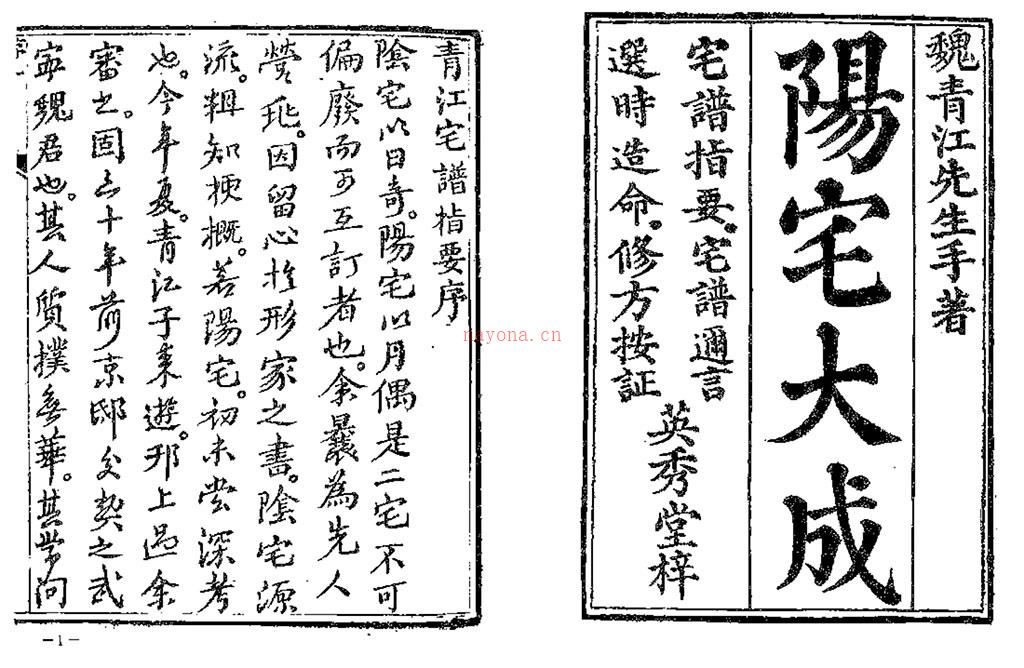 魏青江先生手著
陽宅大成
宅譜指要。宅譜邇言
選時造命。修方按証
英秀堂梓
青江宅譜指要序
陰宅以日奇。陽宅以月偶是二宅不可
偏廢而可互訂者也。余曩為先人
營兆。因留心於形家之書。陰宅源
流。粗知梗概。若陽宅。初未嘗深考
也。今年夏。青江子来遊邗上過余
審之。固二十年前京邸交契之武
寧魏君也。其人質樸無華。其學问
nayona.cn
-1-